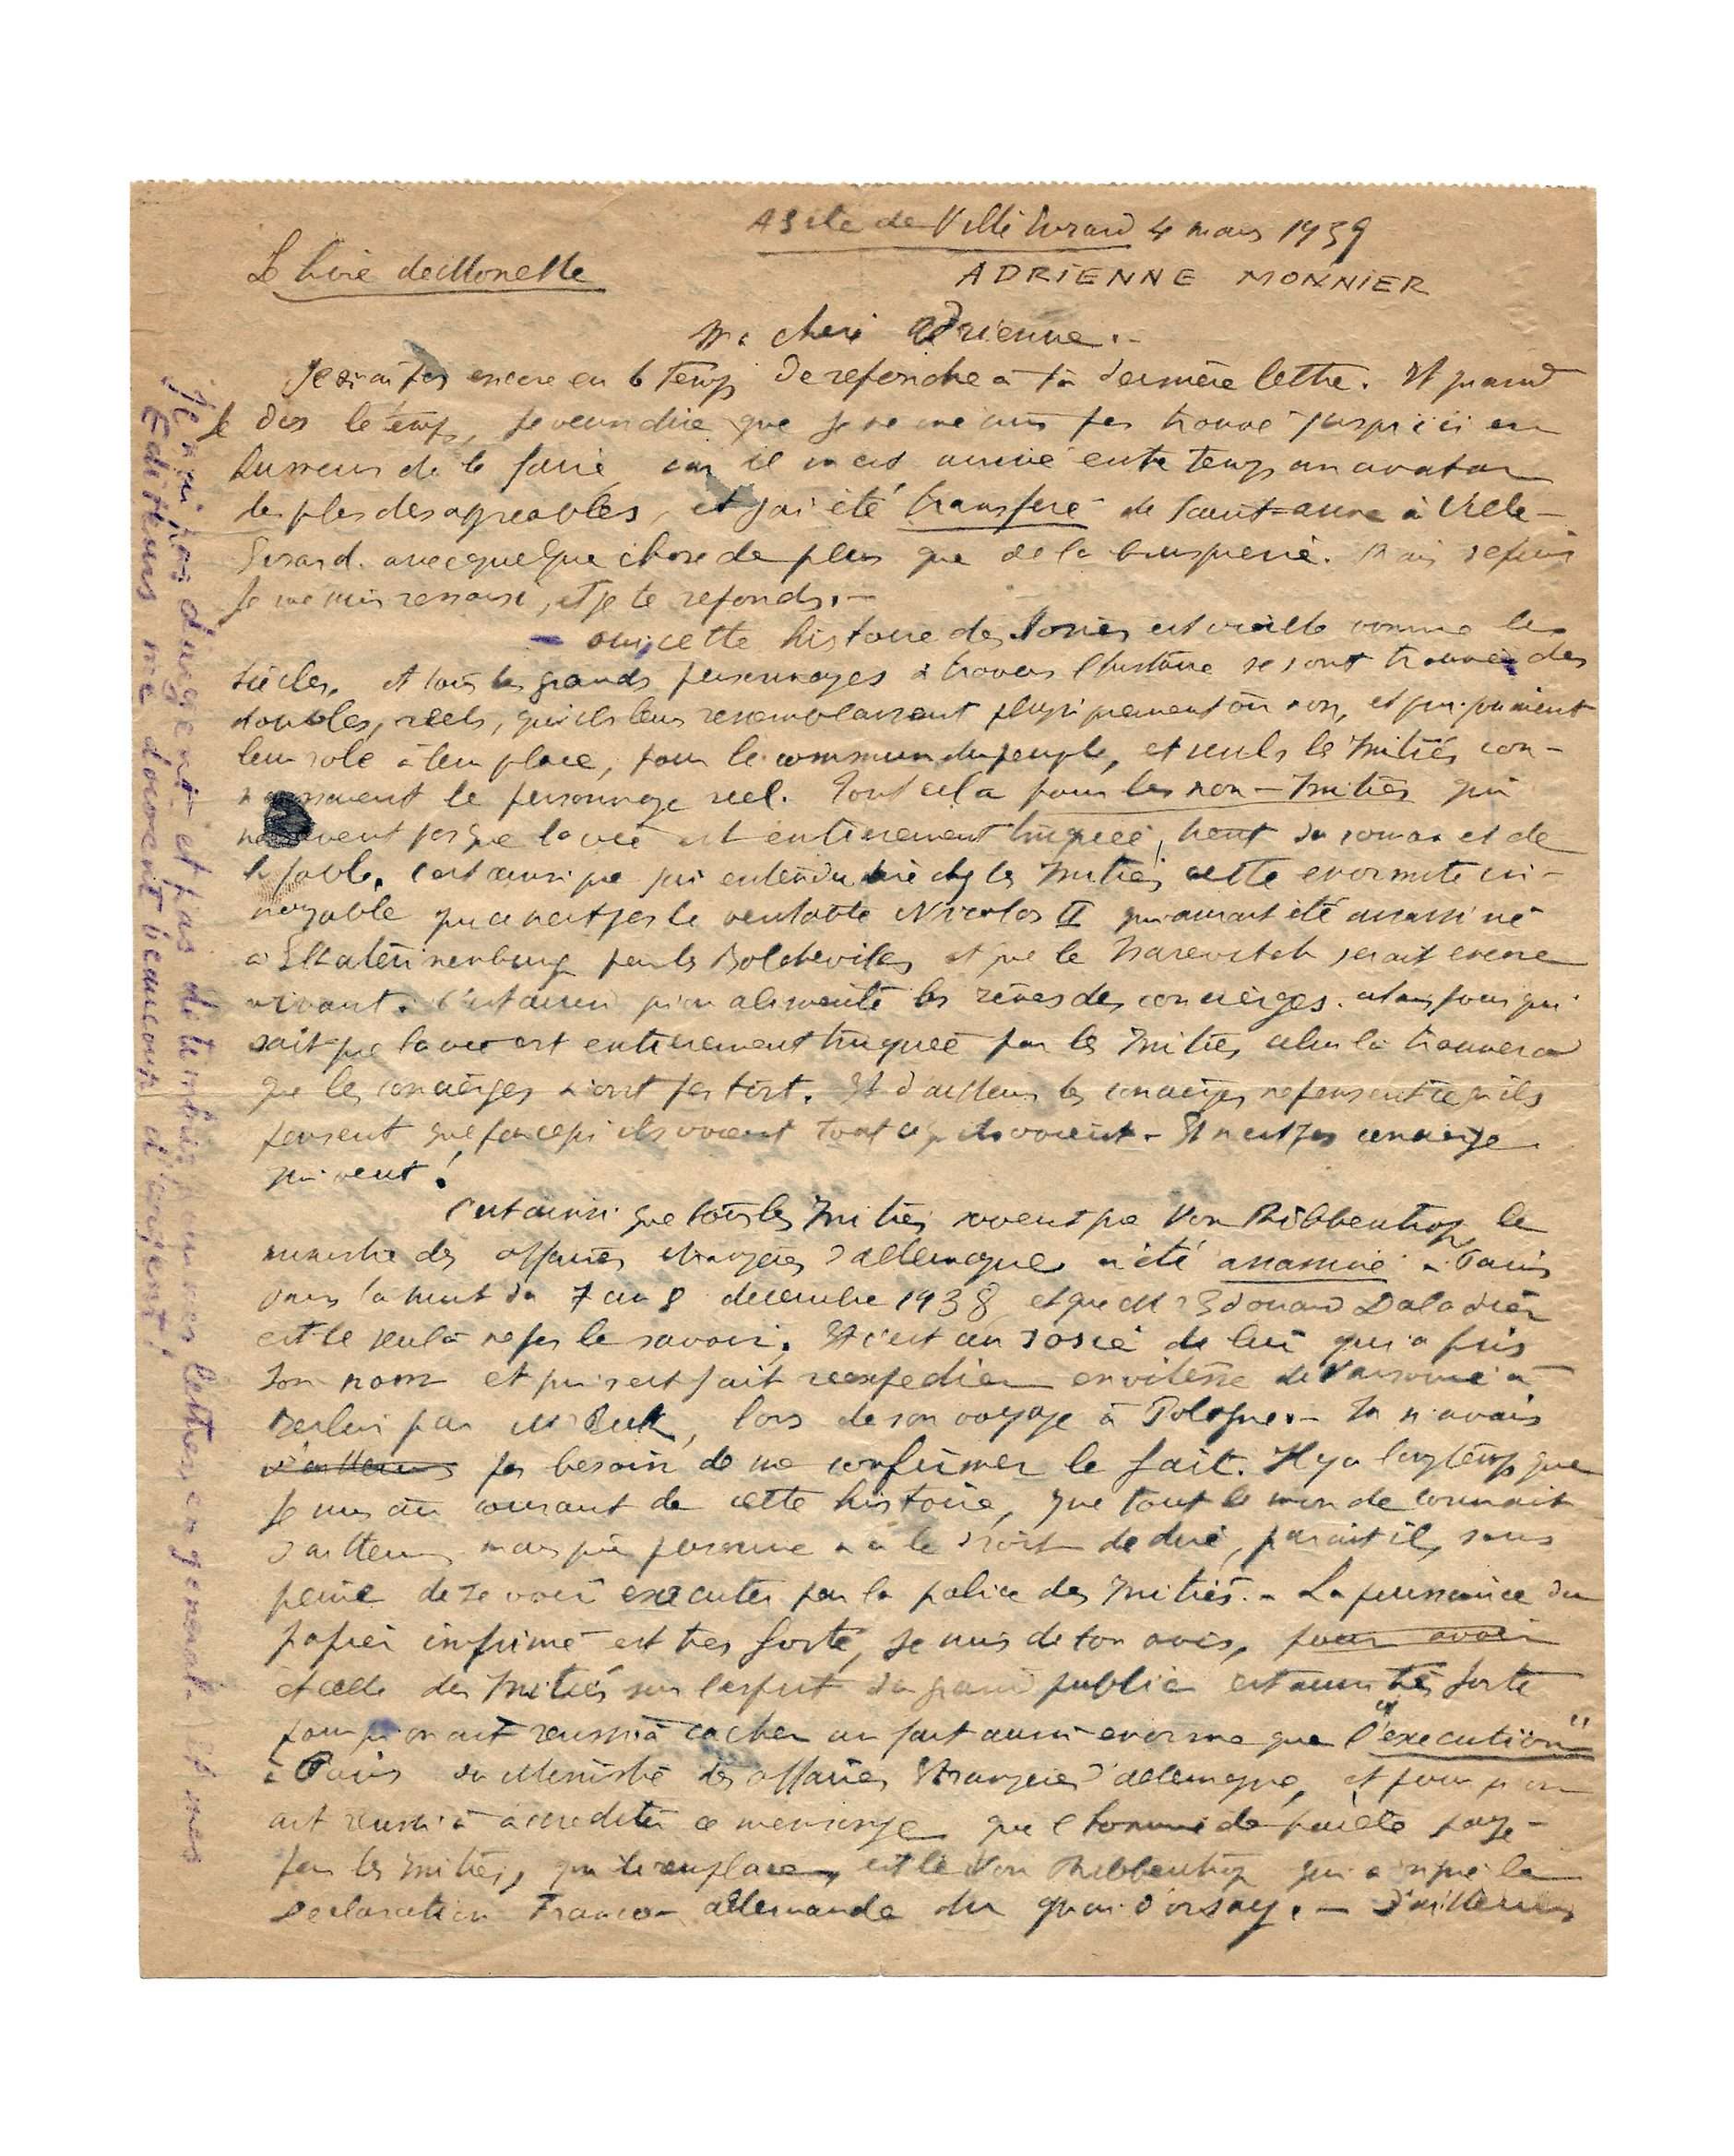 Asile de Ville Evrard 4 mars 1939
Le livre de Monelle
ADRIENNE MONNIER
Ma chere Adrienne.-
Je n'ai pas encore eu le temps de repondre à ta dernière lettre. Et quand
Je dis le temps, je veux dire que je ne me suis pas trouvé jusqu'ici en
humeur de le faire car il m'est arrivé entre temps un avatar
des plus desagreables, et j'ai été transferé de Saint-anne à Ville-
Evrard. avec quelque chose de plus que de la brusquerie. Mais depuis
je me suis ressaisi, et je te reponds.-
- oui, cette histoire des Sosies est vieille comme les
siècles, et tous les grands personnages à travers l'histoire se sont trouvés des
doubles, reels, qu'ils leur ressemblassent physiquement ou non, et qui jouaient
leur role à leur place, pour le commun du peuple, et seuls les Initiés con-
naissaient le personnage reel. Tout cela pour les non-Initiés qui
ne savent pas que la vie est entierement truquée, tient du roman et de
la fable. C'est ainsi que j'ai entendu dire chez les Initiés cette enormité in-
croyable que ce n'est pas le veritable Nicolas II qui aurait été assassiné
à Ekaterinenburg par les Bolcheviks et que le Tsarevitch serait encore
vivant. C'est ainsi qu'on alimente les rêves des concierges. Mais pour qui
sait que la vie est entierement truquée par les Initiés celui là trouvera
que les concierges n'ont pas tort. Et d'ailleurs les concierges ne pensent ce qu'ils
pensent que parce qu'ils voient tout ce qu'ils voient.- Et n'est pas concierge
qui veut!
C'est ainsi que tous les Initiés savent que Von Ribbentrop, le
ministre des affaires etrangeres d'allemagne a été assassiné à Paris
dans la nuit du 7 au 8 decembre 1938, et que M. Edouard Daladier
est le seul à ne pas le savoir. Et c'est un sosie de lui qui a pris
son nom et qui s'est fait reexpedier en vitesse de Varsovie à
Berlin par M. Beck, lors de son voyage à Pologne.- Tu n'avais
d'ailleurs pas besoin de me confirmer le fait. Il y a longtemps que
je suis au courant de cette histoire, que tout le monde connait
d'ailleurs mais que personne n'a le droit de dire, parait il, sous
peine de se voir executer par la police des Initiés.- La puissance du
papier imprimé est tres forte, je suis de ton avis, pour avoir
et celle des Initiés sur l'esprit du grand public est aussi très forte
pour qu'on ait reussi à cacher un fait aussi enorme que "l'execution"
à Paris du Ministre des affaires Etrangeres d'allemagne, et pour qu'on
ait reussi à accrediter ce mensonge que l'homme de paille payé
par les Initiés, qui le remplace, est le Von Ribbentrop qui a signé la
Declaration Franco-allemande du quai d'orsay.- D'ailleurs
Je n'ai pas d'argent et pas de timbres pour mes lettres en general. Et mes
Editeurs me doivent beaucoup d'argent!